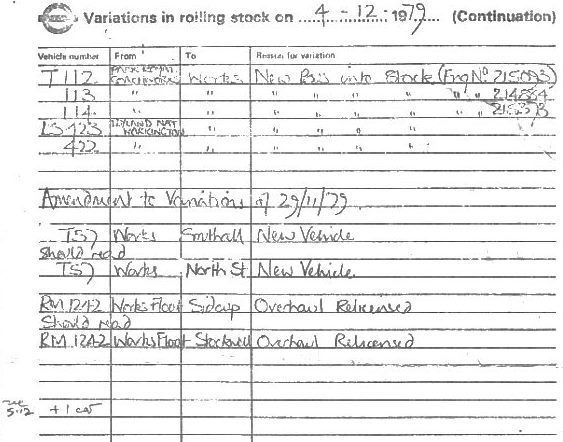 Variations in rolling stock on 4 - 12 - 1979 (Continuation)
Vehicle number From To Reason for variation
T 112 PARK ROYAL COACHWORKS Works New Bus into Stock (Eng No. 215093)
113 " " " " " " " " 214884
114 " " " " " " " " 215373
LS 423 LEYLAND NAT WORKINGTON " " " " "
422 " " " " " "
Amendment to Variations of 29/11/79
T57 Works Southall New Vehicle
should read
T57 Works North St New Vehicle
RM 1242 Works Float Sidcup Overhaul Relicensed
Should read
RM 1242 Works Float Stockwell Overhaul Relicensed
5.12 + 1